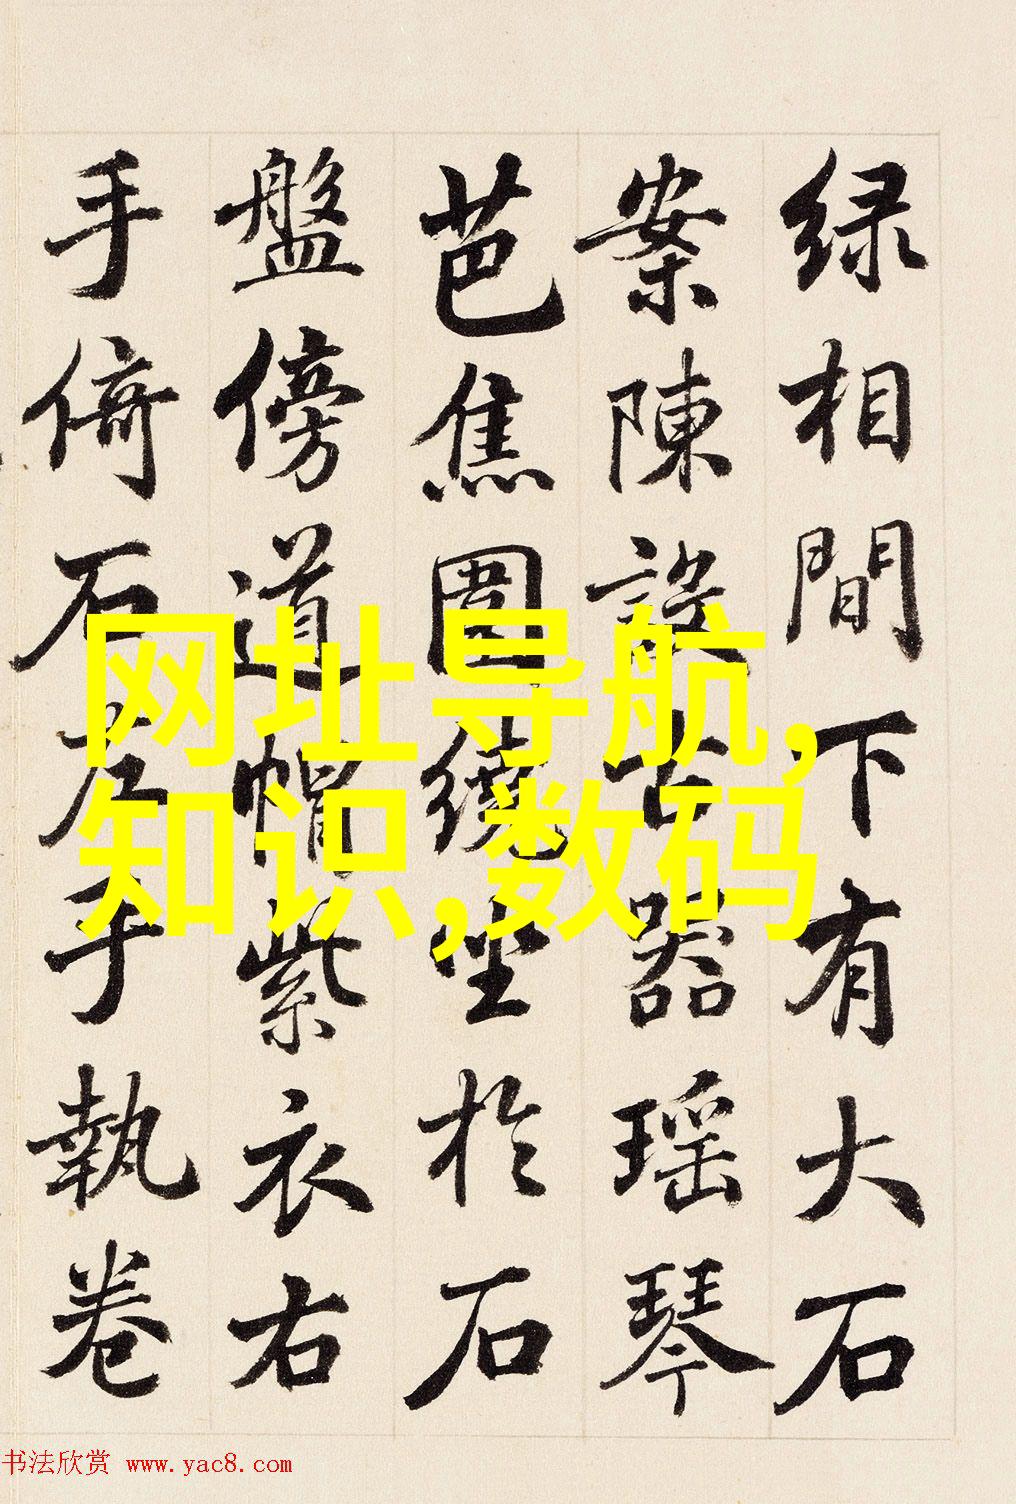 绿相間下有大石
案陳設古器瑶琴
芭焦圍繞坐於石
盤傍道帽紫衣右
手倚石左手執卷
网址导航,
知识,数码
书法欣赏 www.yac8.com